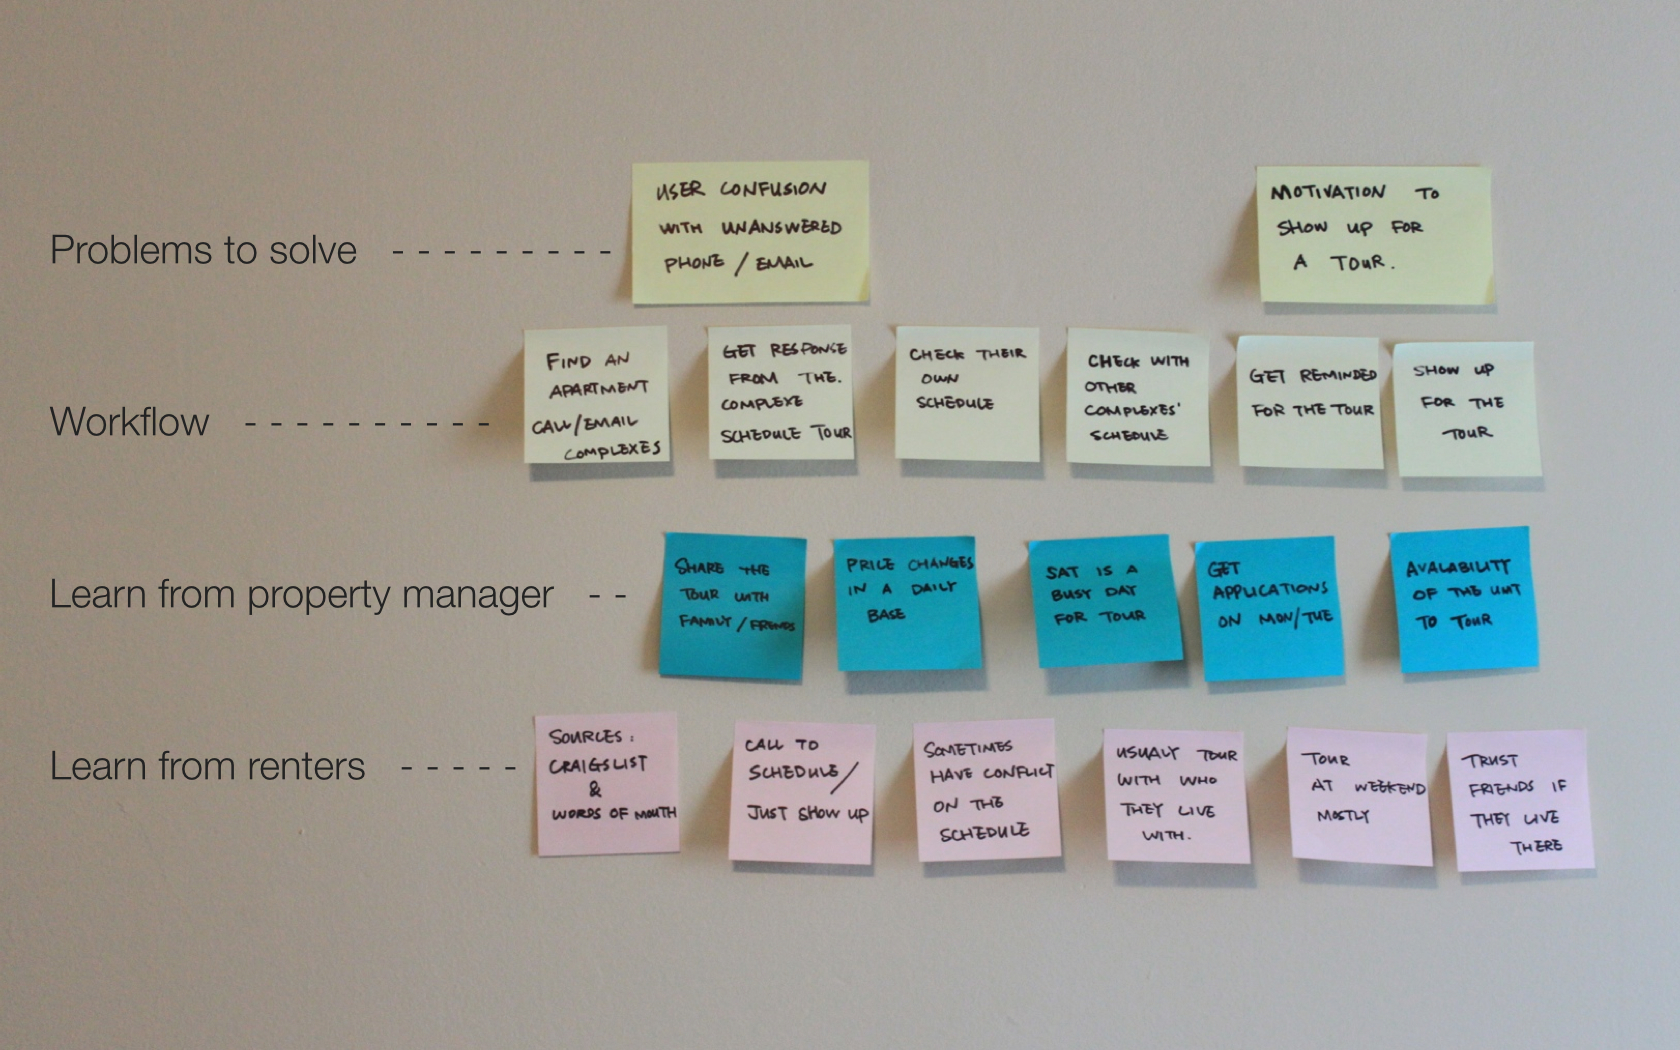 Problems to solve
USER CONFUSION
WITH UNANSWERED
PHONE / EMAIL
MOTIVATION TO
SHOW UP FOR
A TOUR.
Workflow
FIND AN
APARTMENT
CALL/EMAIL
COMPLEXES
GET RESPONSE
FROM THE.
COMPLEXE
SCHEDULE TOUR
CHECK THEIR
OWN
SCHEDULE
CHECK WITH
OTHER
COMPLEXES'
SCHEDULE
GET REMINDED
FOR THE TOUR
SHOW UP
FOR THE
TOUR
Learn from property manager
SHARE THE
TOUR WITH
FAMILY / FRENDS
PRICE CHANGES
IN A DAILY
BASE
SAT IS A
BUSY DAY
FOR TOUR
GET
APPLICATIONS
ON MON/TUE
AVALABILITY
OF THE UNIT
TO TOUR
Learn from renters
SOURCES:
CRAIGSLIST
&
WORDS OF MOUTH
CALL TO
SCHEDULE/
JUST SHOW UP
SOMETIMES
HAVE CONFLICT
ON THE
SCHEDULE
USUALY TOUR
WITH WHO
THEY LIVE
WITH.
TOUR
AT WEEKEND
MOSTLY
TRUST
FRIENDS IF
THEY LIVE
THERE